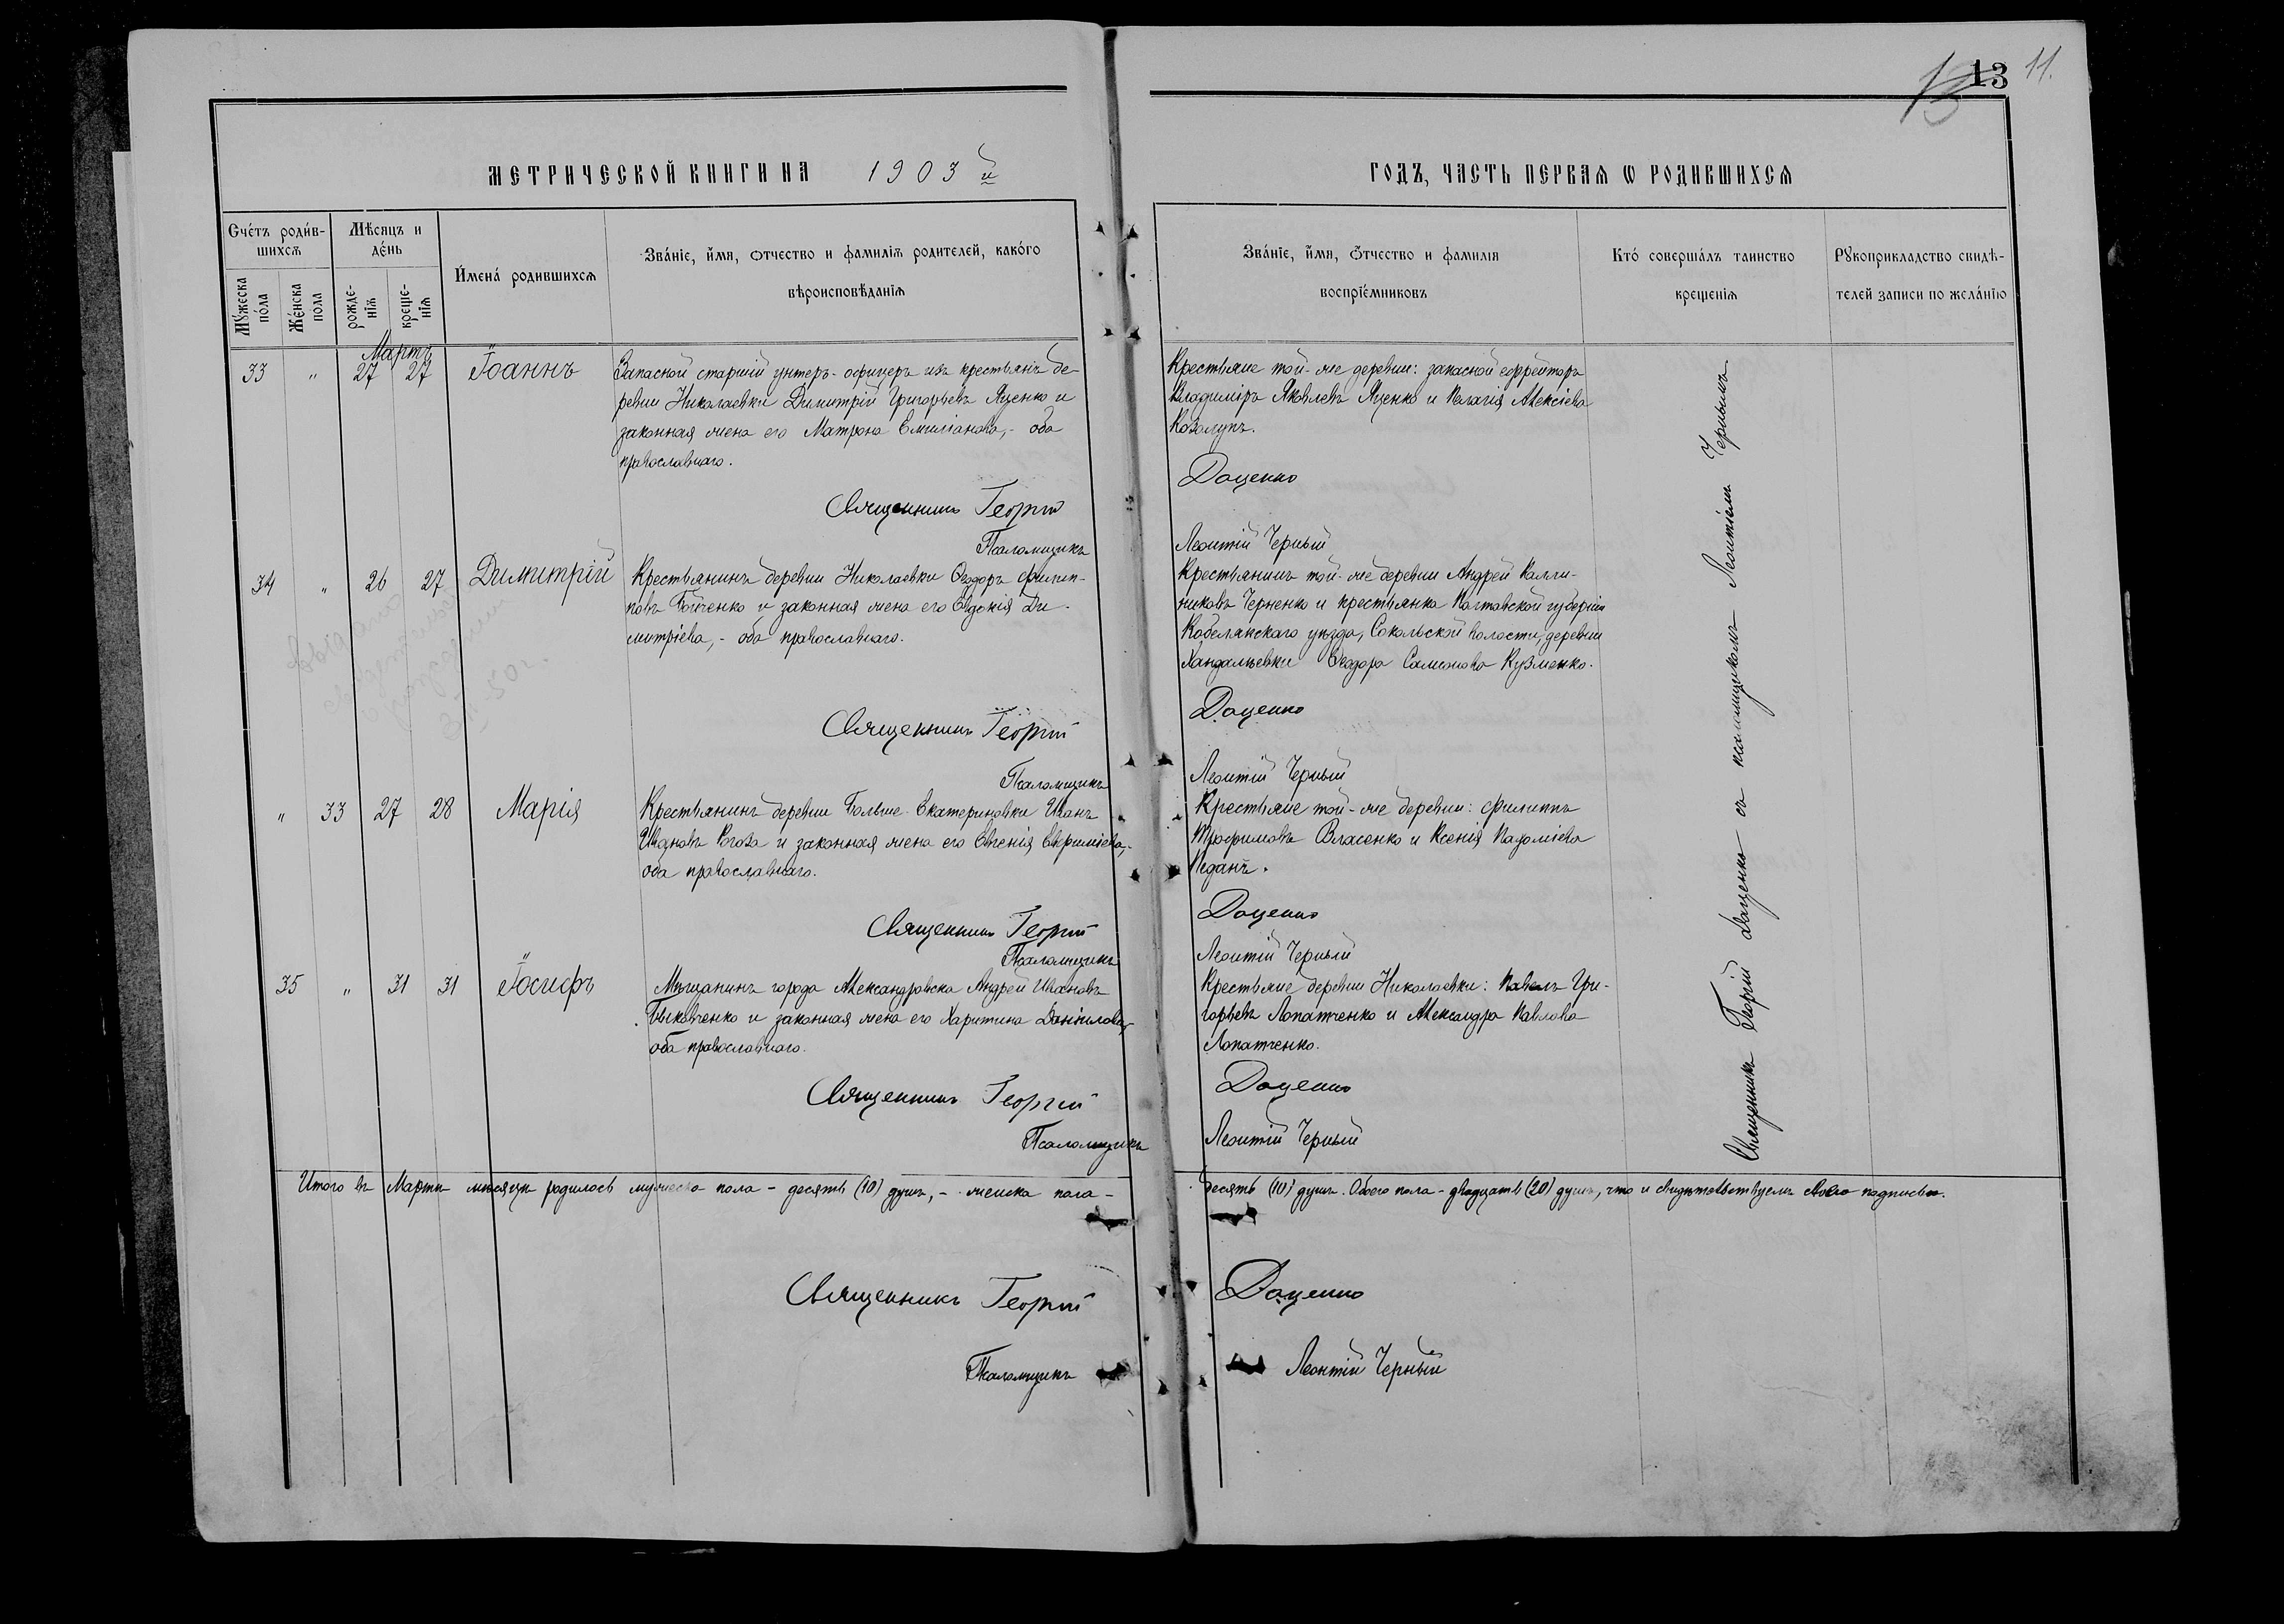 13 11.
МЕТРИЧЕСКОЙ КНИГИ НА 1903 й ГОДЪ, ЧАСТЬ ПЕРВАЯ Ѡ РОДИВШИХСЯ
Счетъ родив-
шихся
Мужеска
пола
Женска
пола
Мѣсяцъ и
день
рожде-
нія
креще-
нія
Имена родившихся
Званіе, имя, отчество и фамилія родителей, какого
вѣроисповѣданія
Званіе, имя, отчество и фамилія
воспріемниковъ
Кто совершалъ таинство
крещенія
Рукоприкладство свидѣ-
телей записи по желанію
Мартъ
33 " 27 27 Іоаннъ
Запасной старшій унтеръ-офицеръ изъ крестьянъ де-
ревни Николаевки Димитрій Григорьевъ Яценко и
законная жена его Матрона Емиліанова,- оба
православнаго.
Крестьяне той-же деревни: запасной ефрейторъ
Владиміръ Яковлевъ Яценко и Пелагія Алексіева
Козолупъ.
Священникъ Георгій Доценко
Псаломщикъ Леонтій Черный
34 " 26 27 Димитрій
Крестьянинъ деревни Николаевки Ѳеодоръ Филип-
повъ Бойченко и законная жена его Евдокія Ди-
митріева,- оба православнаго.
Крестьянинъ той-же деревни Андрей Калли-
никовъ Черненко и крестьянка Полтавской губерніи
Кобелякскаго уѣзда, Сокольской волости, деревни
Хандалѣевки Ѳеодора Самсонова Кузменко.
Священникъ Георгій Доценко
Псаломщикъ Леонтій Черный
" 33 27 28 Марія
Крестьянинъ деревни Больше-Екатериновки Иванъ
Ивановъ Рогоза и законная жена его Евгенія Евфиміева,-
оба православнаго.
Крестьяне той-же деревни: Филиппъ
Трофимовъ Власенко и Ксенія Пахоміева
Педанъ.
Священникъ Георгій Доценко
Псаломщикъ Леонтій Черный
35 " 31 31 Іосифъ
Мѣщанинъ города Александровска Андрей Ивановъ
Быковченко и законная жена его Харитина Даниилова,-
оба православнаго.
Крестьяне деревни Николаевки: Павелъ Гри-
горьевъ Лопатченко и Александра Павлова
Лопатченко.
Священникъ Георгій Доценко
Псаломщикъ Леонтій Черный
Священникъ Георгій Доценко съ псаломщикомъ Леонтіемъ Чернымъ
Итого въ Мартѣ мѣсяцѣ родилось мужеска пола - десять (10) душъ, - женска пола - десять (10) душъ. Обоего пола - двадцать (20) душъ, что и свидѣтельствуемъ подписью.
Священникъ Георгій Доценко
Псаломщикъ Леонтій Черный